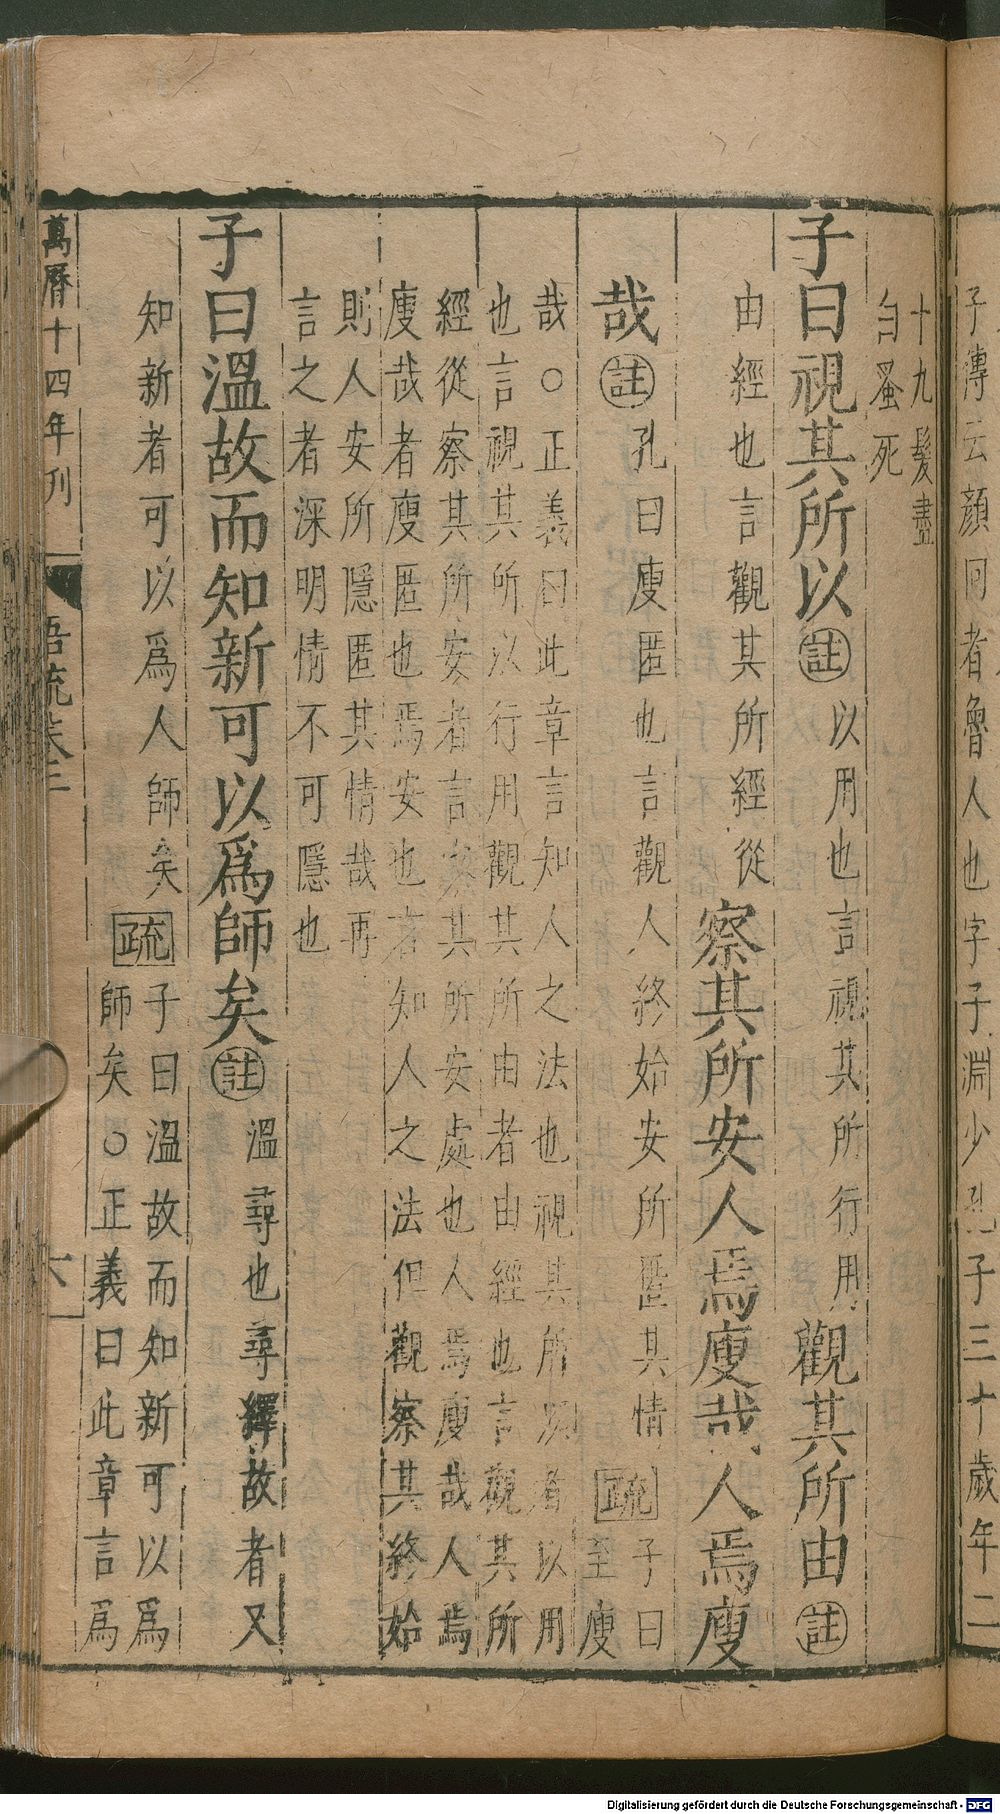 子傳云顏回者魯人也字子淵少孔子三十歲年二
十九髮盡
白蚤死
子曰視其所以註以用也言視其所行用觀其所由註
由經也言觀其所經從察其所安人焉廋哉人焉廋
哉註孔曰廋匿也言觀人終始安所匿其情疏子曰
至廋
哉○正義曰此章言知人之法也視其所以者以用
也言視其所以行用觀其所由者由經也言觀其所
經從察其所安者言察其所安處也人焉廋哉人焉
廋哉者廋匿也焉安也言知人之法但觀察其終始
則人安所隱匿其情哉再
言之者深明情不可隱也
子曰溫故而知新可以爲師矣註溫尋也尋繹故者又
知新者可以爲人師矣疏子曰溫故而知新可以爲
師矣○正義曰此章言爲
萬曆十四年刊
語疏卷二
六
Digitalisierung gefördert durch die Deutsche Forschungsgemeinschaft - DFG